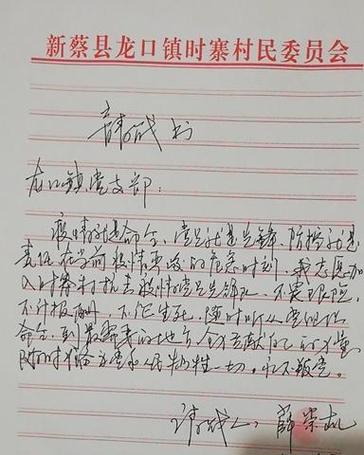 新蔡县龙口镇时寨村民委员会
请战书
龙口镇党支部：
疫情就是命令，党员就是先锋，防控就是
责任在当前疫情严峻的危急时刻，我志愿加
入时寨村抗击疫情党员先锋队，不畏艰险，
不计报酬，不论生死，随时听从党组织
命令，到最需要的地方，贡献自己的力量
随时准备为党和人民牺牲一切，永不叛党。
请战人：薛崇